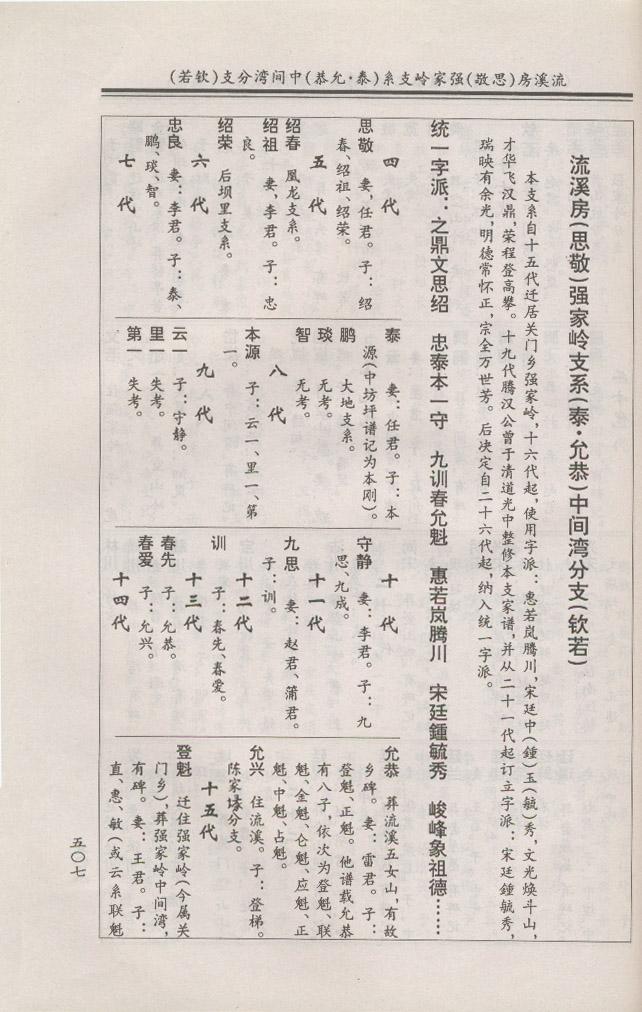 流溪房(思敬)强家岭支系(泰·允恭)中间湾分支(钦若)
流溪房(思敬)强家岭支系(泰·允恭)中间湾分支(钦若)
本支系自十五代迁居关门乡强家岭,十六代起,使用字派:惠若岚腾川,宋廷中(锺)玉(毓)秀,文光焕斗山,
才华飞汉鼎,荣程登高攀。十九代腾汉公曾于清道光中整修本支家谱,并从二十一代起订立字派:宋廷锺毓秀,
瑞映有余光,明德常怀正,宗全万世芳。后决定自二十六代起,纳入统一字派。
统一字派:之鼎文思绍 忠泰本一守 九训春允魁 惠若岚腾川 宋廷锺毓秀 峻峰象祖德……
四代
思敬 妻,任君。子:绍
春、绍祖、绍荣。
五代
绍春 凰龙支系。
绍祖 妻,李君。子:忠
良。
绍荣 后坝里支系。
六代
忠良 妻:李君。子:泰、
鹏、琰、智。
七代
泰 妻:任君。子:本
源(中坊坪谱记为本刚)。
鹏 大地支系。
琰 无考。
智 无考。
八代
本源 子:云一、里一、第
一。
九代
云一 子:守静。
里一 失考。
第一 失考。
十代
守静 妻:李君。子:九
思、九成。
十一代
九思 妻:赵君、蒲君。
子:训。
十二代
训 子:春先、春爱。
十三代
春先 子:允恭。
春爱 子:允兴。
十四代
允恭 葬流溪五女山,有故
乡碑。妻:雷君。子:
登魁、正魁。他谱载允恭
有八子,依次为登魁、联
魁、金魁、仑魁、应魁、正
魁、中魁、占魁。
允兴 住流溪。子:登梯。
陈家壕分支。
十五代
登魁 迁住强家岭(今属关
门乡),葬强家岭中间湾,
有碑。妻:王君。子:
直、惠、敏(或云系联魁
五〇七